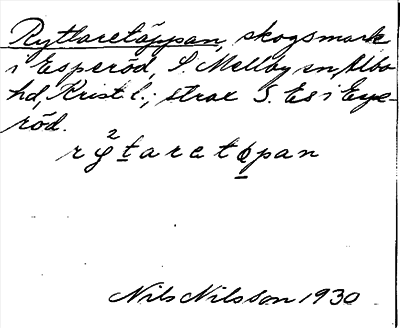 Ryttaretäppan, skogsmark
i Esperöd, S. Mellby sn, Albo
hd, Krist l.; strax S. Es i Espe-
röd.
ry²taretäpan
Nils Nilsson 1930